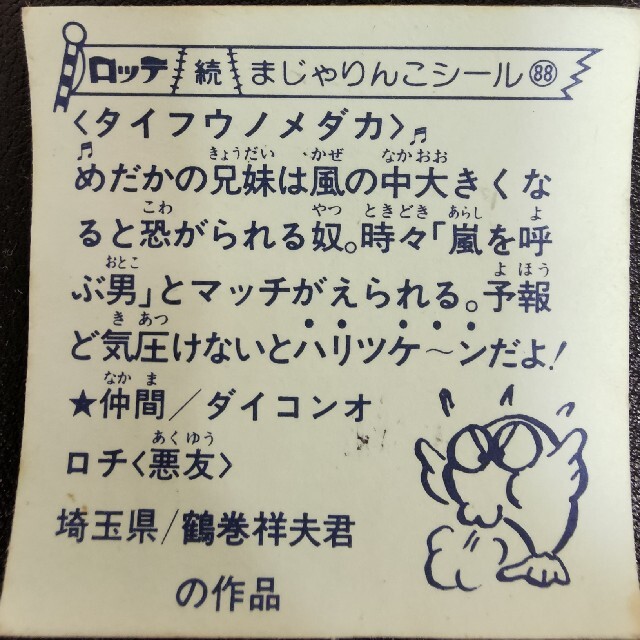 ロッテ 続 まじゃりんこシール 88
〈タイフウノメダカ〉♬
♬ きょうだい かぜ なかおお
めだかの兄妹は風の中大きくな
こわ やつ ときどき あらし よ
ると恐がられる奴。時々「嵐を呼
おとこ よほう
ぶ男」とマッチがえられる。予報
き あつ
ど気圧けないとハリツケ～ンだよ!
なかま
★仲間/ダイコンオ
あくゆう
ロチ〈悪友〉
埼玉県/鶴巻祥夫君
の作品